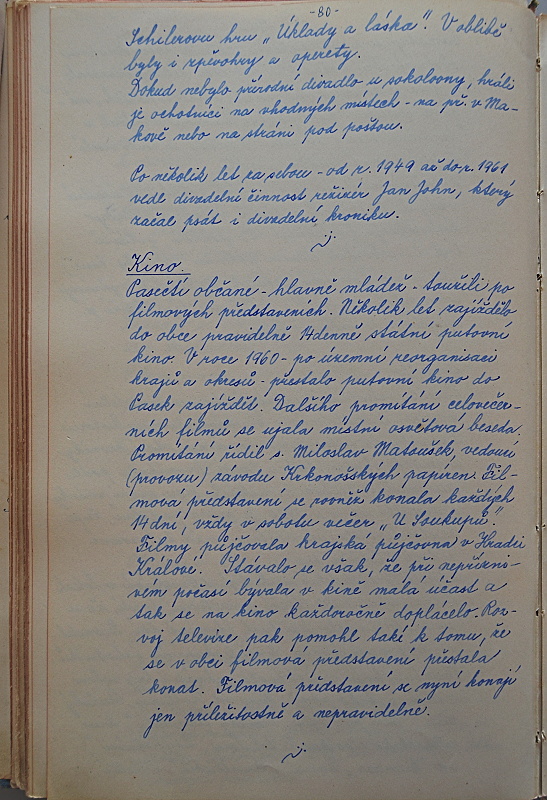 -80-
Schilerovu hru „Úklady a láska". V oblibě
byly i zpěvohry a operety.
Dokud nebylo přírodní divadlo u sokolovny, hráli
je ochotníci na vhodných místech - na př. v Ma-
kově nebo na stráni pod poštou.
Po několik let za sebou - od r. 1949 až do r. 1961
vedl divadelní činnost režizér Jan John, který
začal psát i divadelní kroniku.
Kino.
Pasečtí občané - hlavně mládež - toužili po
filmových představeních. Několik let zajíždělo
do obce pravidelně 14denně státní putovní
kino. V roce 1960 - po územní reorganisaci
krajů a okresů - přestalo putovní kino do
Pasek zajíždět. Dalšího promítání celovečer-
ních filmů se ujala místní osvětová beseda.
Promítání řídil s. Miloslav Matoušek, vedoucí
(provozu) závodu Krkonošských papíren. Fil-
mová představení se rovněž konala každých
14 dní, vždy v sobotu večer „U Soukupů".
Filmy půjčovala krajská půjčovna v Hradci
Králové. Stávalo se však, že při nepřízni-
vém počasí bývala v kině malá účast a
tak se na kino každoročně doplácelo. Roz-
voj televize pak pomohl také k tomu, že
se v obci filmová představení přestala
konat. Filmová představení se nyní konají
jen příležitostně a nepravidelně.